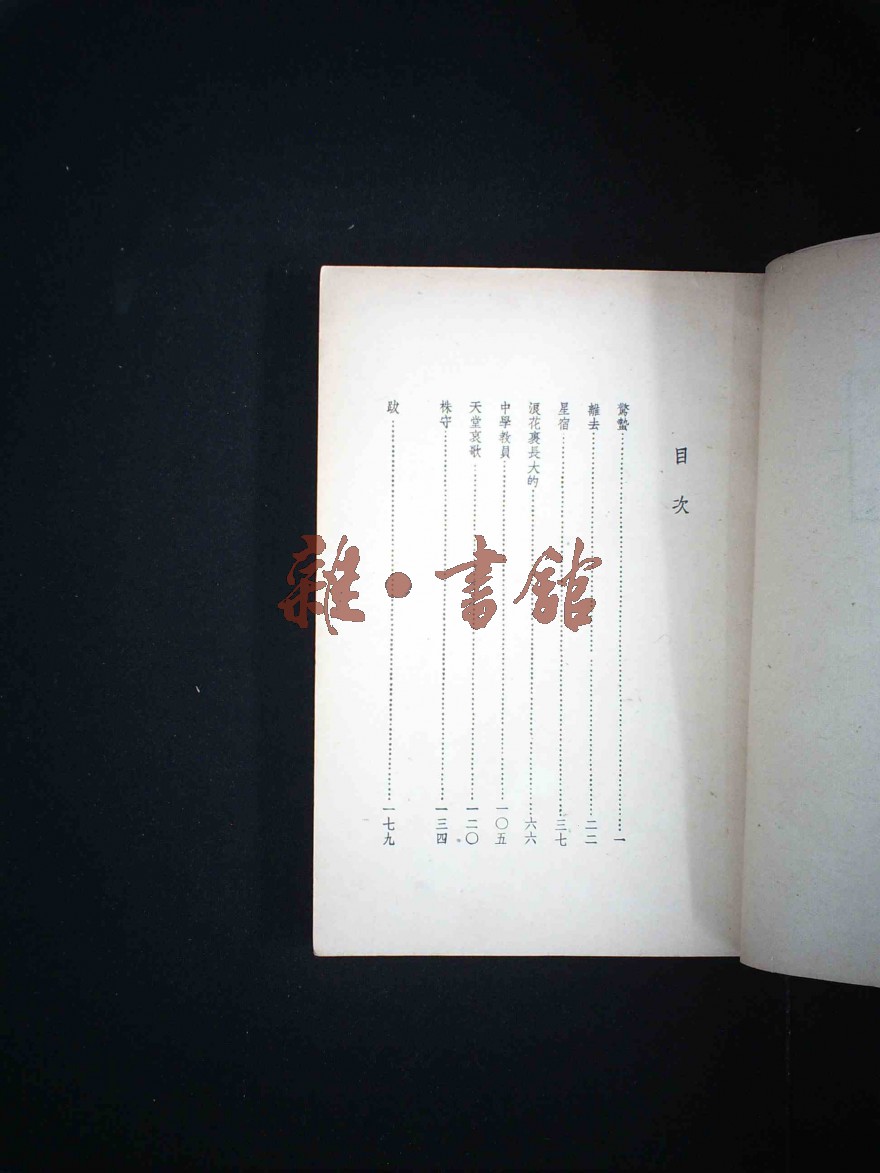 目次
驚蟄……一
離去……二二
星宿……三七
浪花裏長大的……六六
中學教員……一〇五
天堂哀歌……一二〇
株守……一三四
跋……一七九
雜·書館